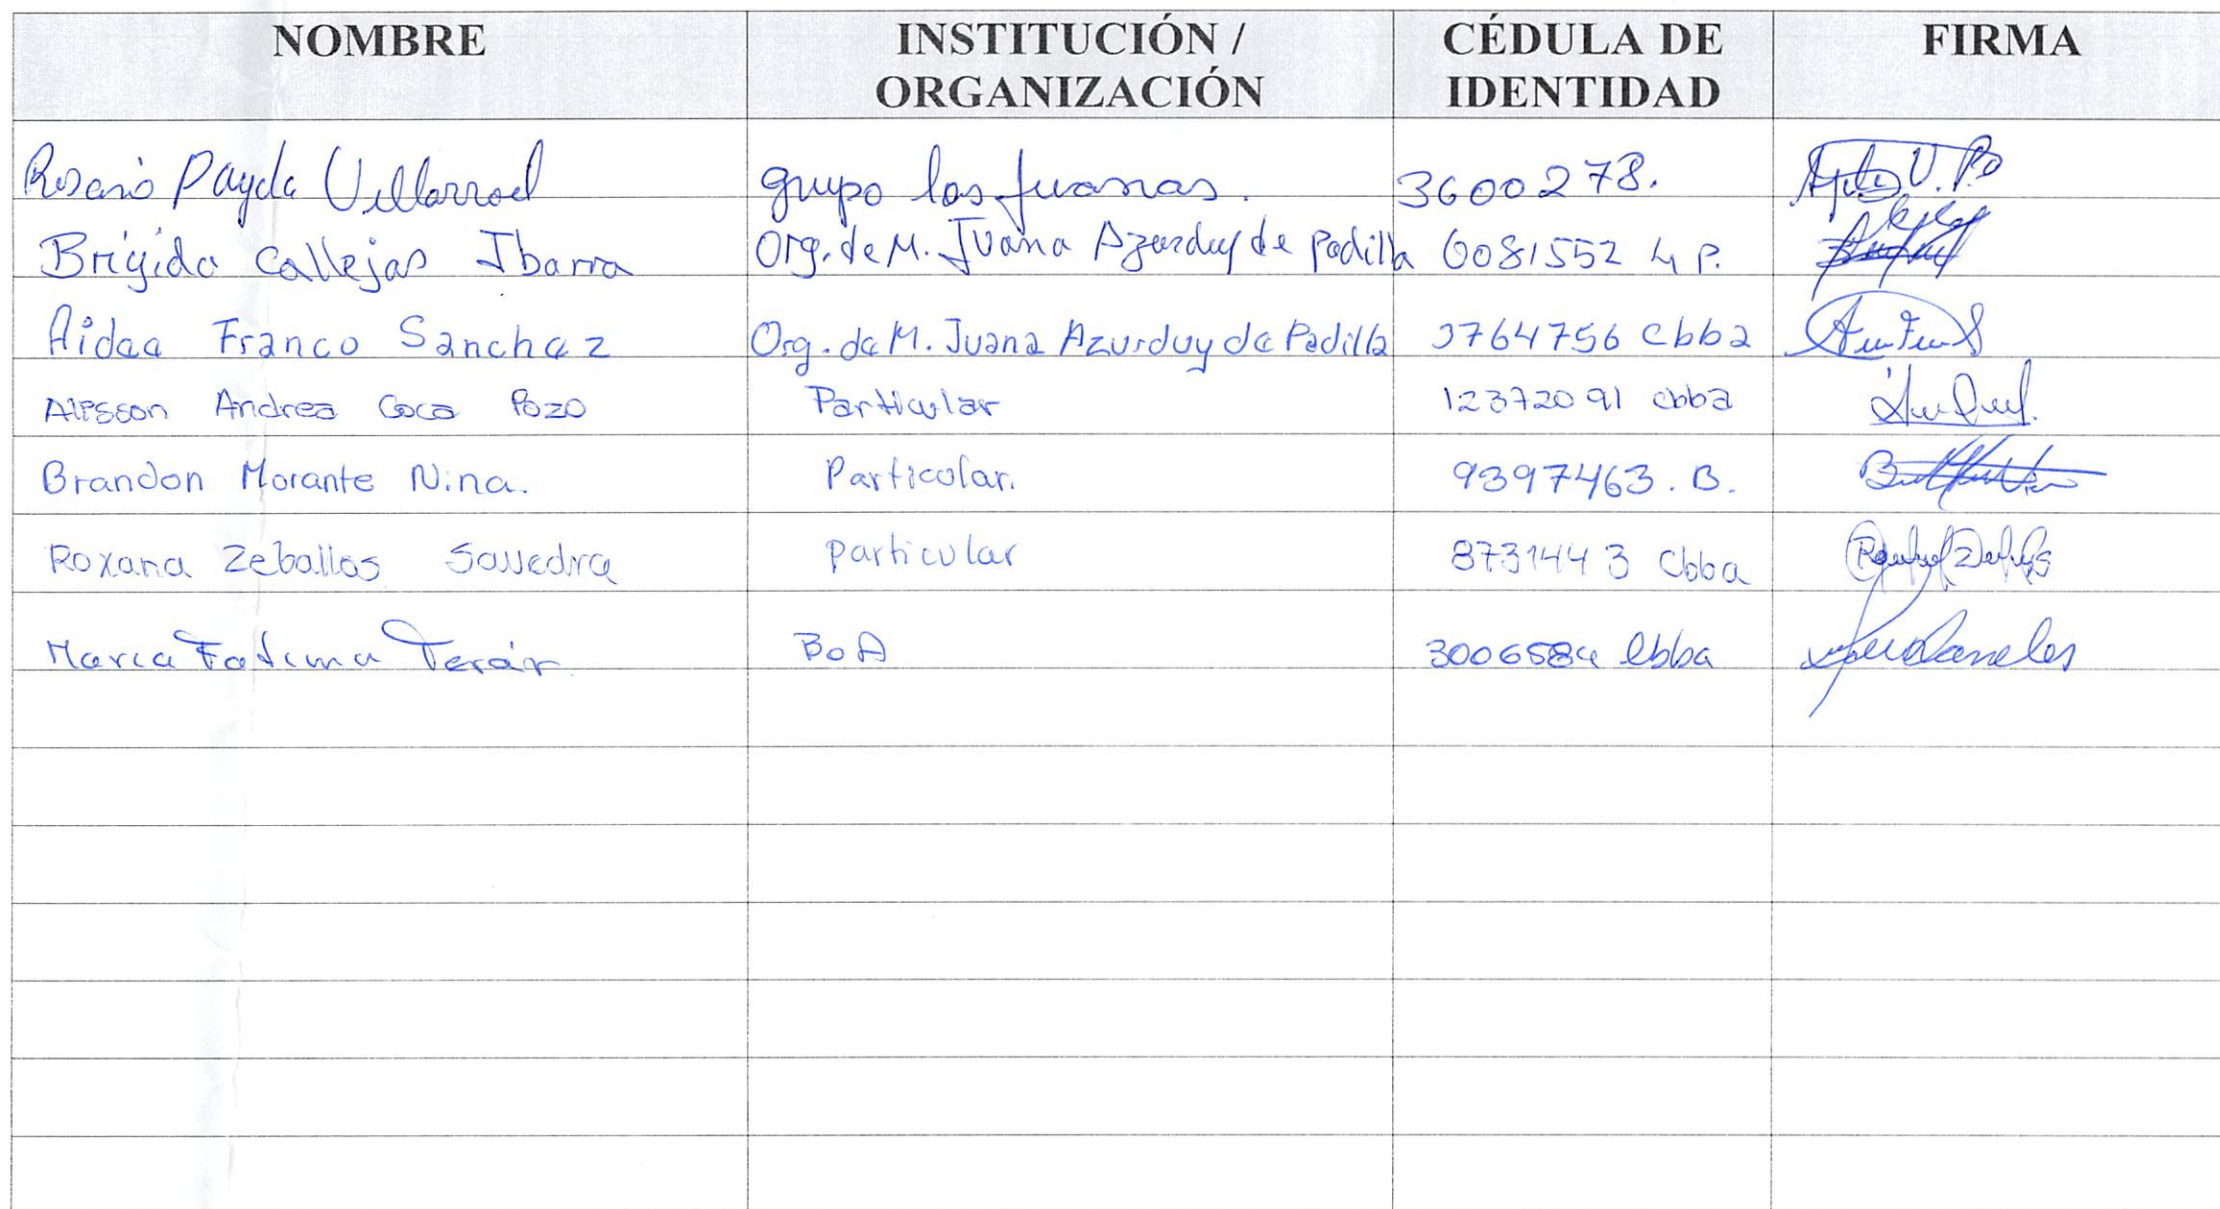 NOMBRE INSTITUCIÓN / CÉDULA DE FIRMA
ORGANIZACIÓN IDENTIDAD
Rosario Payda Villarroel grupo las Juanas. 3600278.
Brígida Callejas Ibarra Org. de M. Juana Azurduy de Padilla 6081552 L P.
Aidaa Franco Sanchez Org. de M. Juana Azurduy de Padilla 3764756 cbba
Alisson Andrea Coca Pozo Particular 12372091 cbba
Brandon Morante Nina. Particular. 9397463. B.
Roxana Zeballos Savedra particular 8731443 Cbba
Maria Fatima Terán BoA 3006584 Cbba